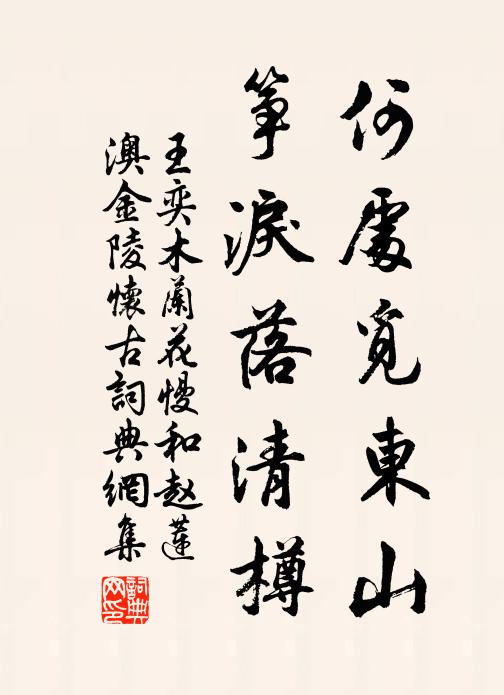 何處覓東山
箏淚落清樽
王奕木蘭花慢和赵蓮
澳金陵懷古詞典網集